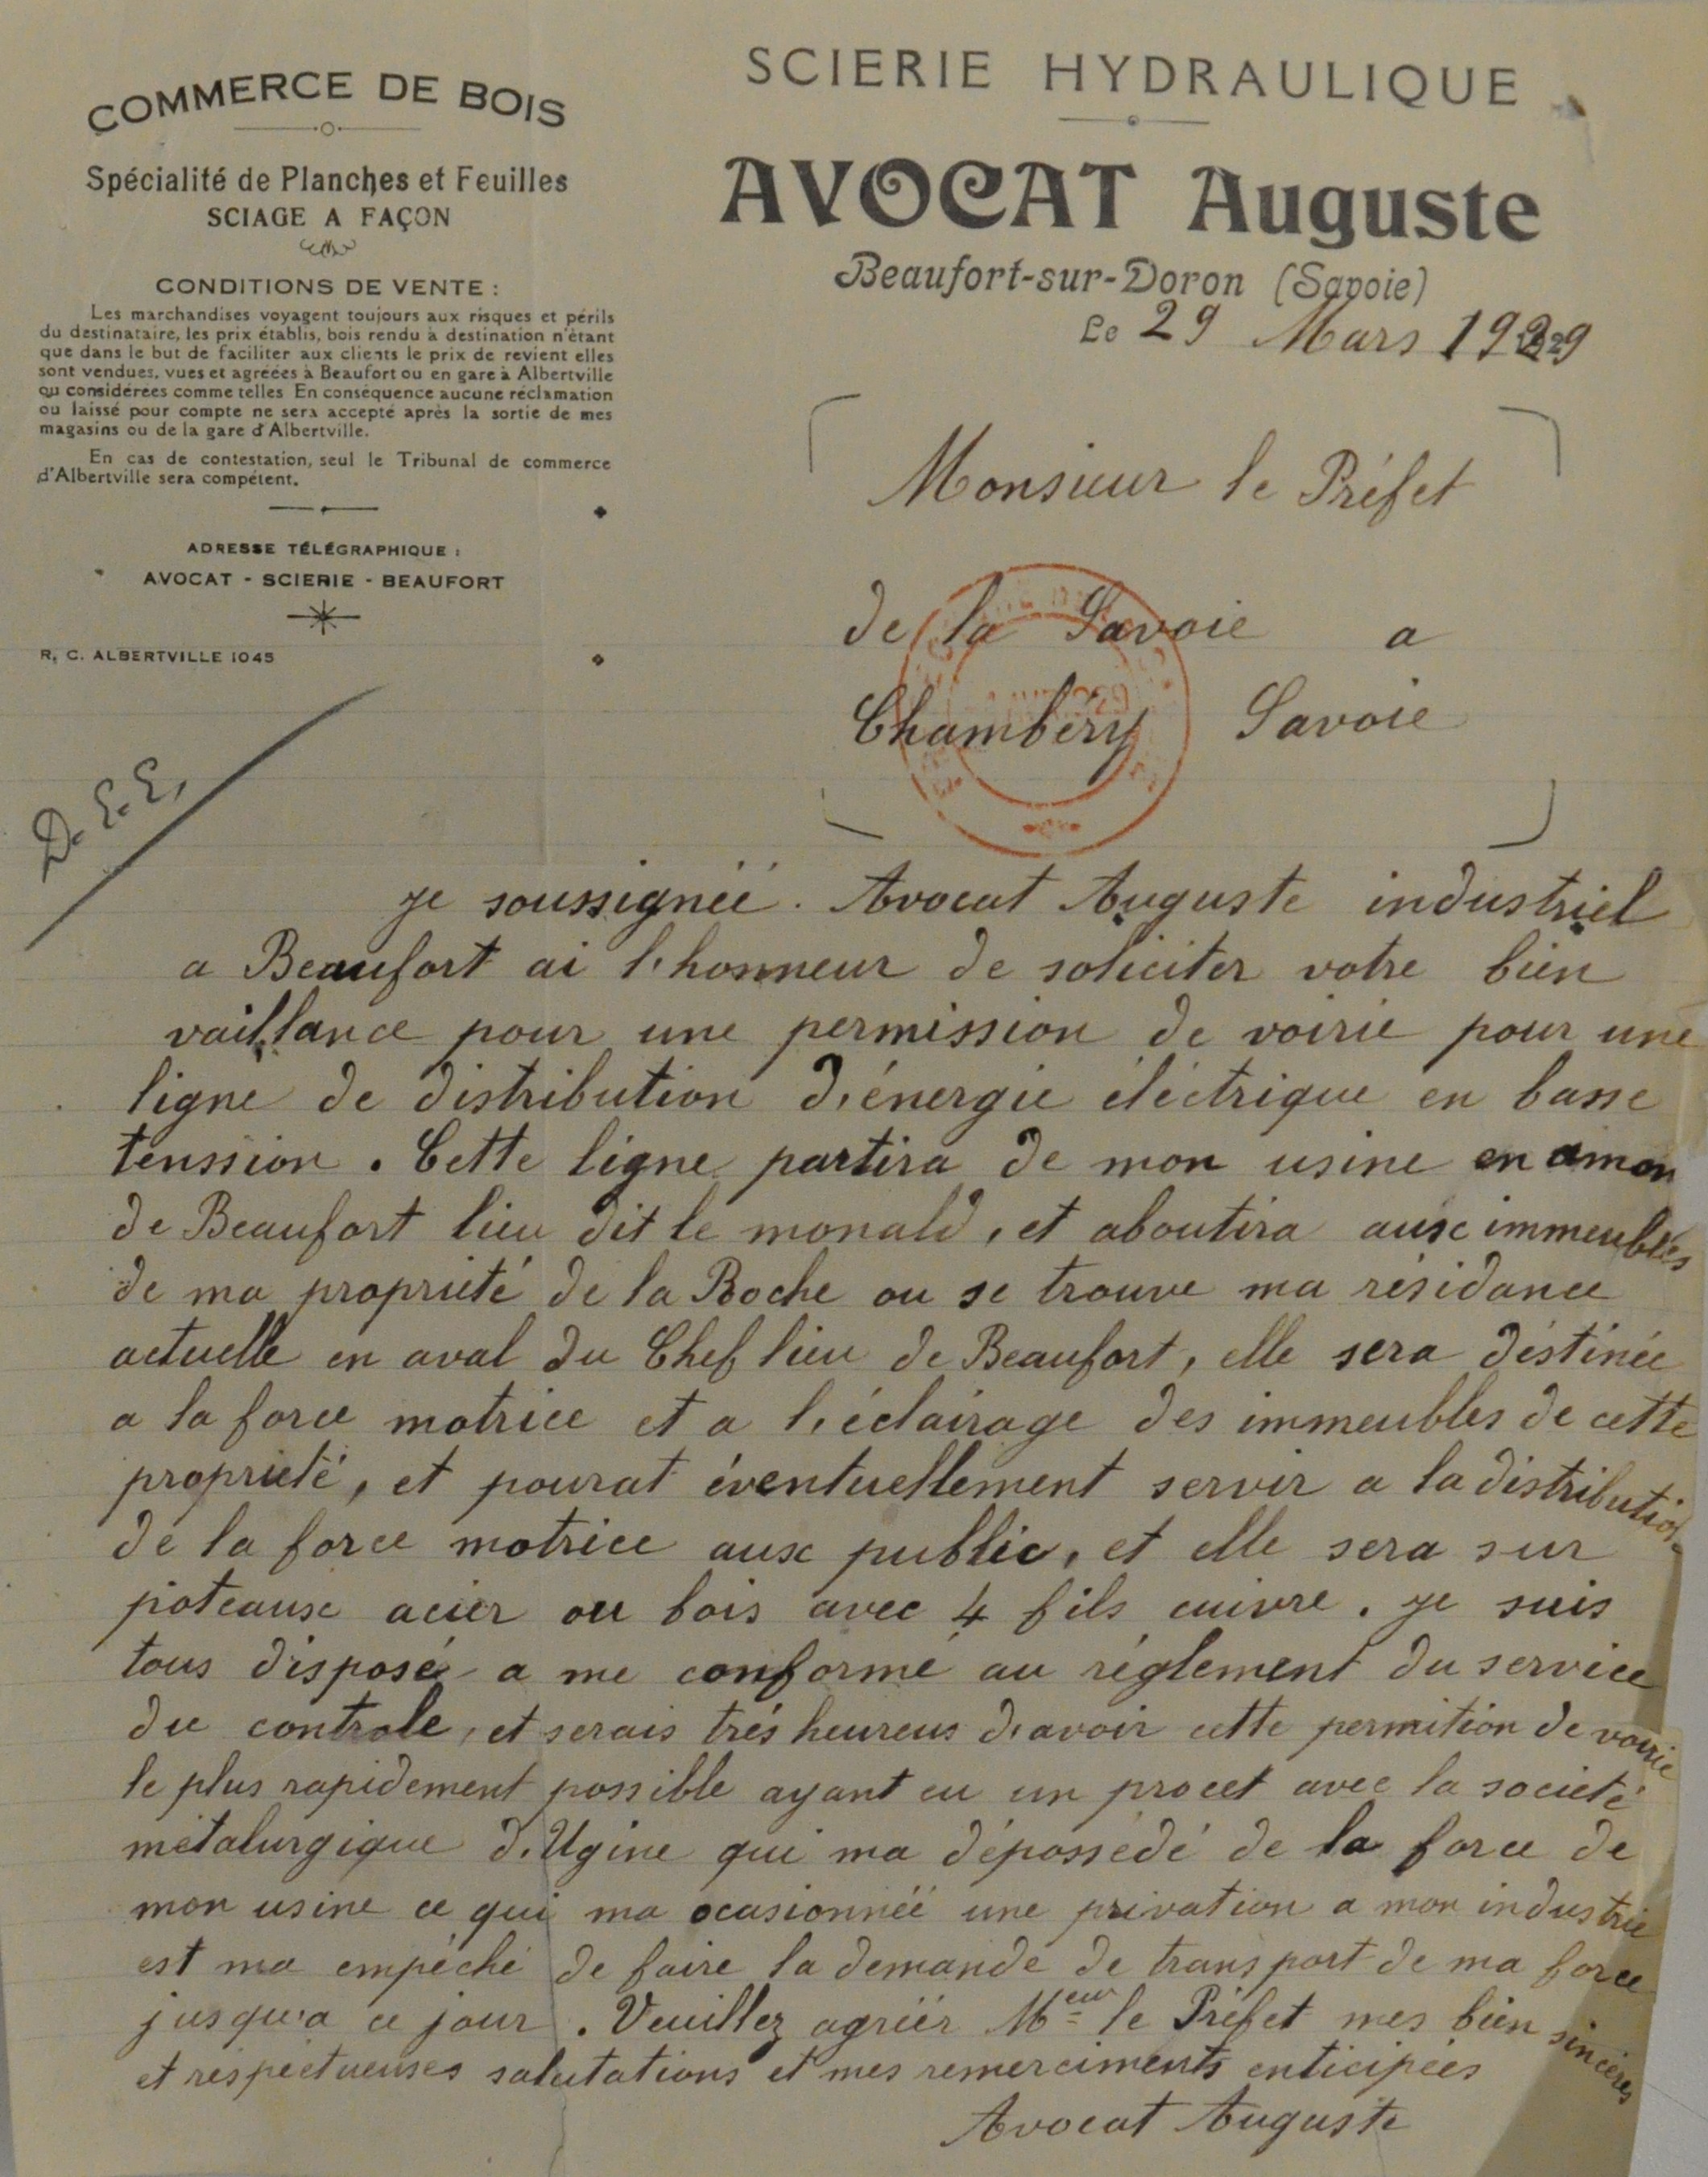 COMMERCE DE BOIS
Spécialité de Planches et Feuilles
SCIAGE A FAÇON
CONDITIONS DE VENTE :
Les marchandises voyagent toujours aux risques et périls
du destinataire, les prix établis, bois rendu à destination n'étant
que dans le but de faciliter aux clients le prix de revient elles
sont vendues, vues et agréées à Beaufort ou en gare à Albertville
ou considérées comme telles En conséquence aucune réclamation
ou laissé pour compte ne sera accepté après la sortie de mes
magasins ou de la gare d'Albertville.
En cas de contestation, seul le Tribunal de commerce
d'Albertville sera compétent.
ADRESSE TÉLÉGRAPHIQUE :
AVOCAT - SCIERIE - BEAUFORT
R. C. ALBERTVILLE 1045
D. E. E.
SCIERIE HYDRAULIQUE
AVOCAT Auguste
Beaufort-sur-Doron (Savoie)
Le 29 Mars 1929
Monsieur le Préfet
de la Savoie a
Chambéry Savoie
je soussignéé. Avocat Auguste industriel
a Beaufort ai l'honneur de soliciter votre bien
vaillance pour une permission de voirie pour une
ligne de distribution d'énergie éléctrique en basse
tenssion. Cette ligne partira de mon usine en amon
de Beaufort lieu dit le monald, et aboutira aux immeubles
de ma propriété de la Roche ou se trouve ma résidance
actuelle en aval du Chef lieu de Beaufort, elle sera déstinée
a la force motrice et a l'éclairage des immeubles de cette
propriété, et pourat éventuellement servir a la distribution
de la force motrice aux public, et elle sera sur
poteaux acier ou bois avec 4 fils cuivre. je suis
tous disposé a me conformé au réglement du service
du controle, et serais trés heureus d'avoir cette permition de voirie
le plus rapidement possible ayant eu un procet avec la societé
métalurgique d'Ugine qui ma dépossédé de la force de
mon usine ce qui ma ocasionnéé une privation a mon industrie
est ma empéché de faire la demande de transport de ma force
jusqu'a ce jour. Veuillez agriér Meur le Préfet mes bien sincères
et réspectueuses salutations et mes remerciments enticipées
Avocat Auguste